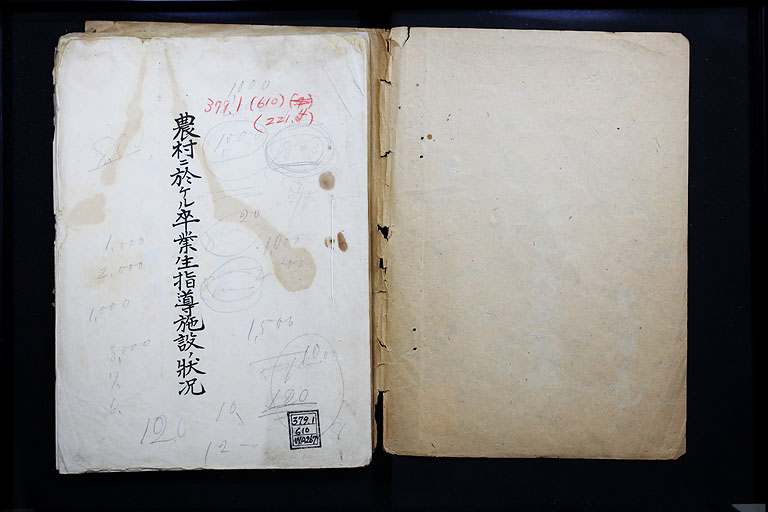 農村ニ於ケル卒業生指導施設ノ狀况
1000
379.1 (610)
(221.4)
1,000
20
1,000
1000
2,000
1,000
1,500
3,000
10
120
16
120
12-
379.1
610